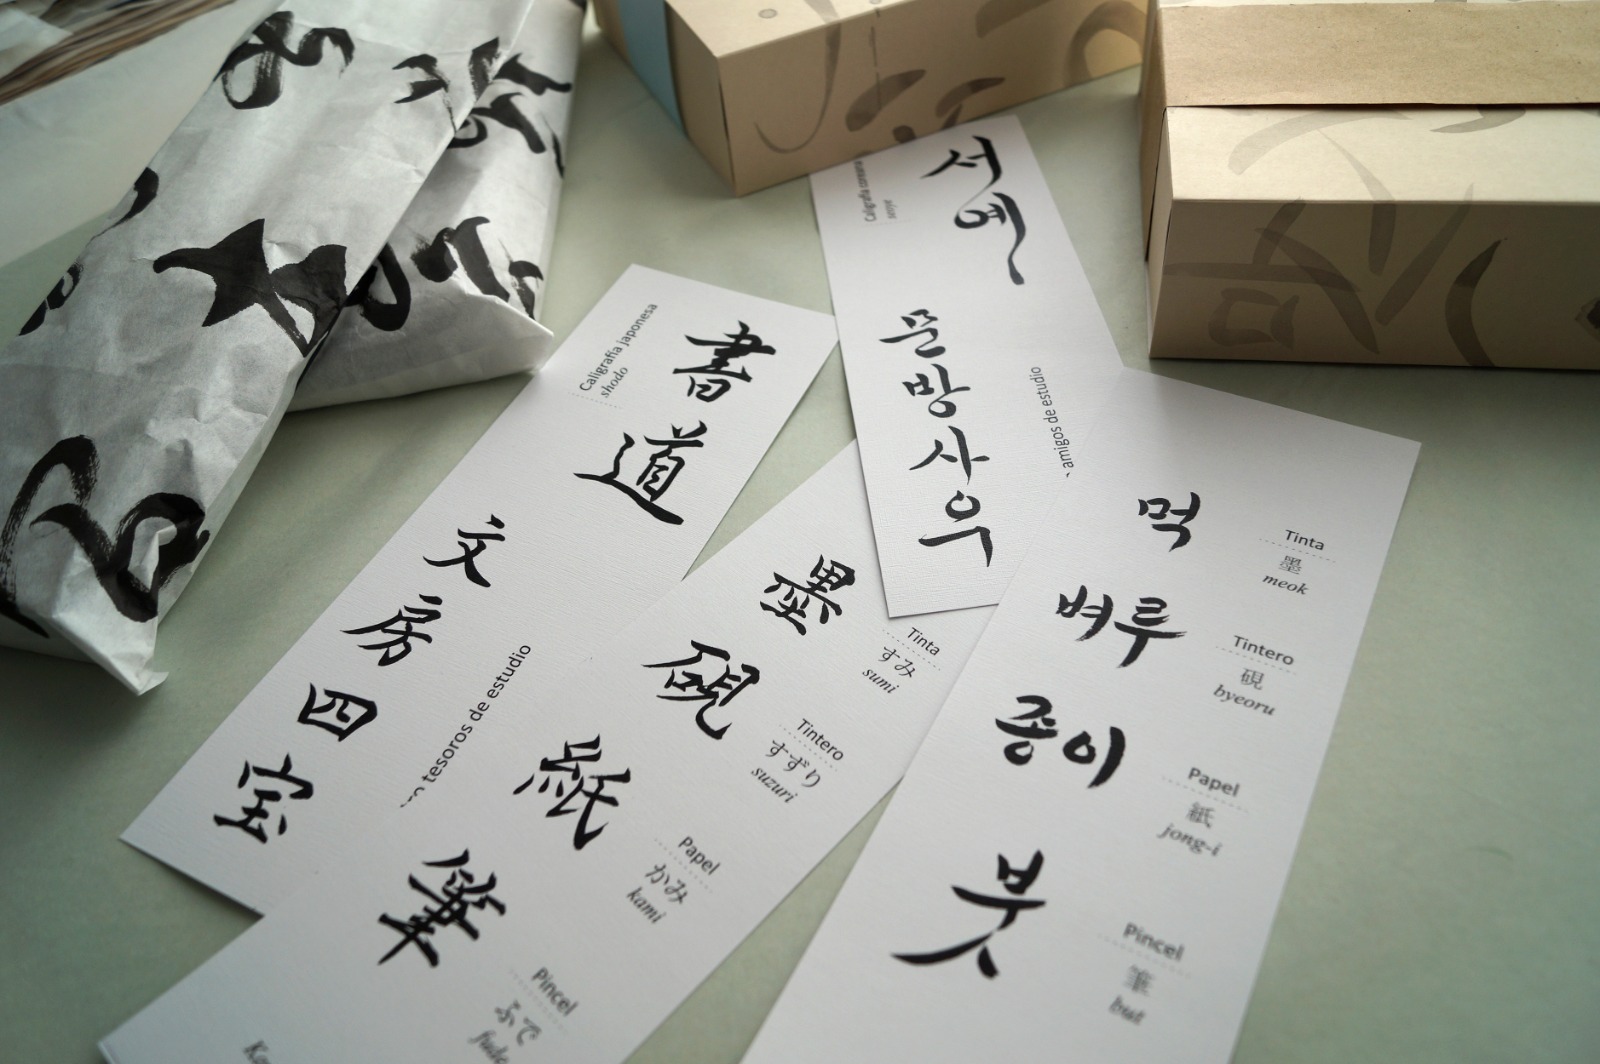 書道
Caligrafía japonesa
shodo
文房四宝
tesoros de estudio
墨
Tinta
すみ
sumi
硯
Tintero
すずり
suzuri
紙
Papel
かみ
kami
筆
Pincel
ふで
fude
서예
Caligrafía coreana
문방사우
amigos de estudio
먹
Tinta
墨
meok
벼루
Tintero
硯
byeoru
종이
Papel
紙
jong-i
붓
Pincel
筆
but